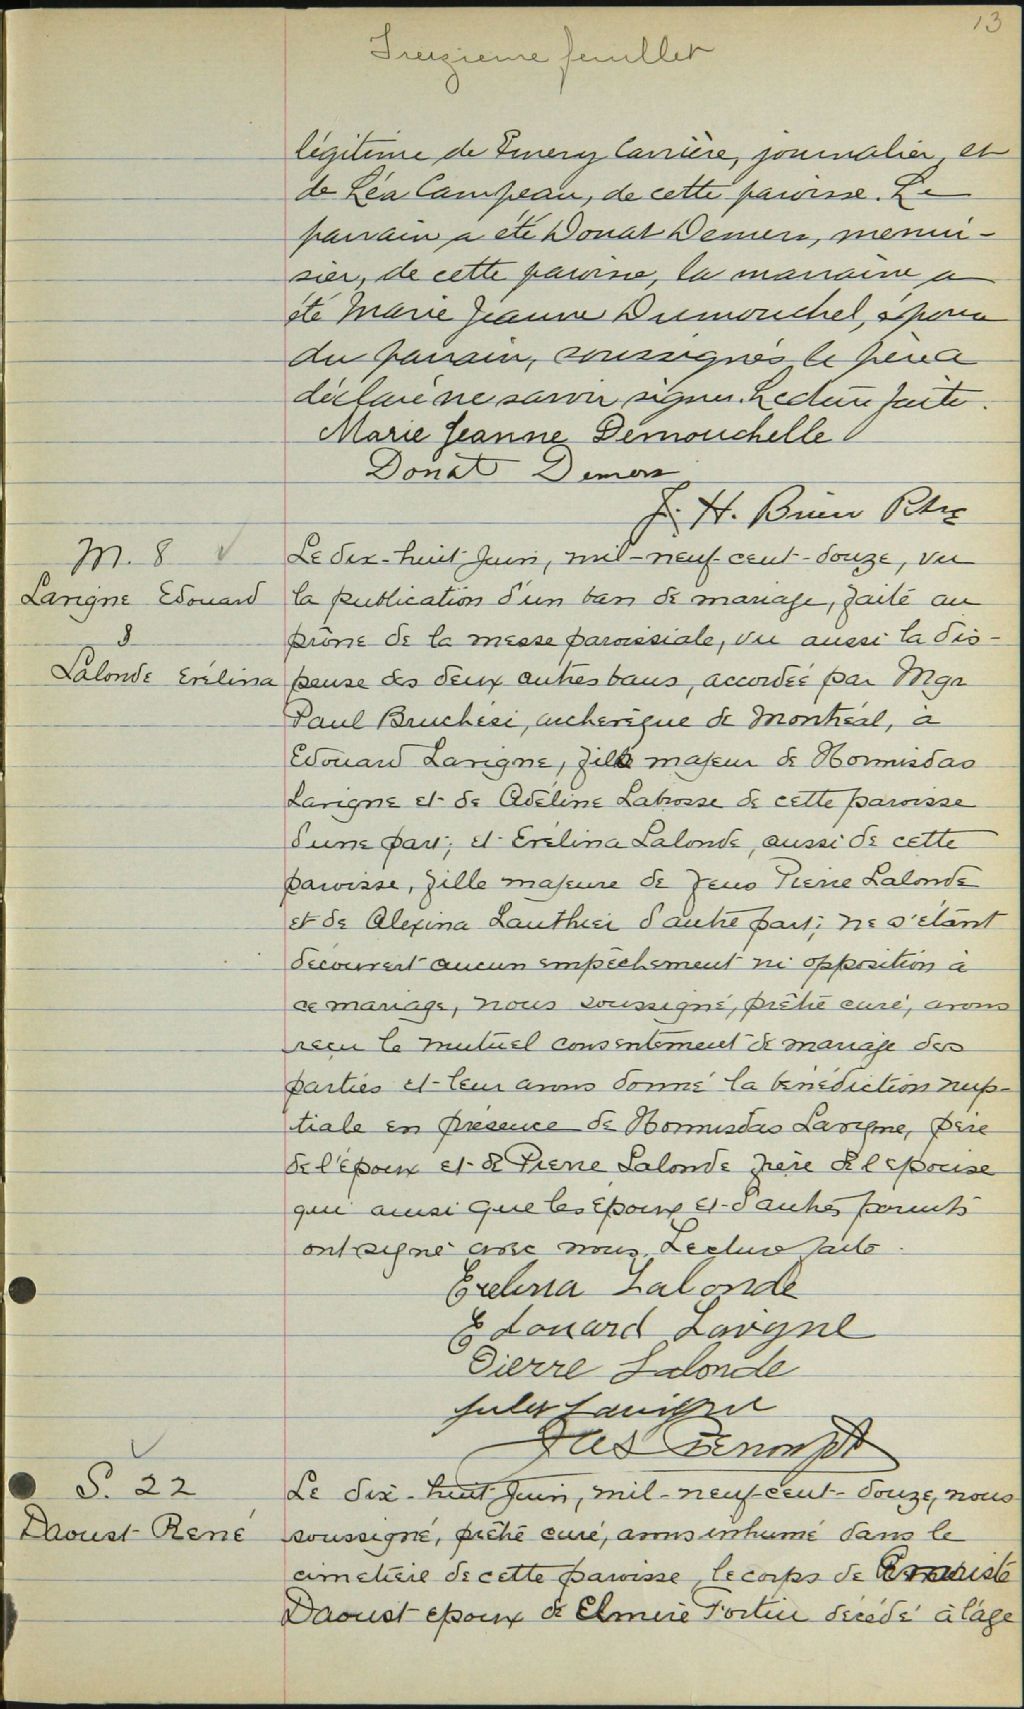 13
Treizieme feuillet
légitime de Emery Carrière, journalier, et
de Léa Campeau, de cette paroisse. Le
parrain a été Donat Demers, menui-
sier, de cette paroisse, la marraine a
été Marie Jeanne Dumouchel, épouse
du parrain, soussignés le père a
déclaré ne savoir signer. Lecture faite.
Marie Jeanne Demouchelle
Donat Demers
J. H. Brien Ptre
M. 8
Lavigne Edouard
&
Lalonde Evélina
Le dix-huit Juin, mil-neuf-cent-douze, vu
la publication d'un ban de mariage, faite au
prône de la messe paroissiale, vu aussi la dis-
pense des deux autres bans, accordée par Mgr
Paul Bruchési, archevêque de Montréal, à
Edouard Lavigne, fils majeur de Hormisdas
Lavigne et de Adéline Labrosse de cette paroisse
d'une part; et Evélina Lalonde, aussi de cette
paroisse, fille majeure de feus Pierre Lalonde
et de Alexina Lauthier d'autre part; ne s'étant
découvert aucun empêchement ni opposition à
ce mariage, nous soussigné, prêtre curé, avons
reçu le mutuel consentement de mariage des
parties et leur avons donné la bénédiction nup-
tiale en présence de Hormisdas Lavigne, père
de l'époux et de Pierre Lalonde frère de l'epouse
qui ainsi que les époux et d'autres parents
ont signé avec nous. Lecture faite.
Evelina Lalonde
Edouard Lavigne
Pierre Lalonde
Jules Lavigne
S. 22
Daoust René
Le dix-huit Juin, mil-neuf-cent-douze, nous
soussigné, prêtre curé, avons inhumé dans le
cimetière de cette paroisse, le corps de
Daoust epoux de Elmire Fortier décédé à l'âge